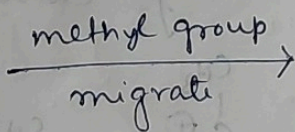 methyl group
migrate